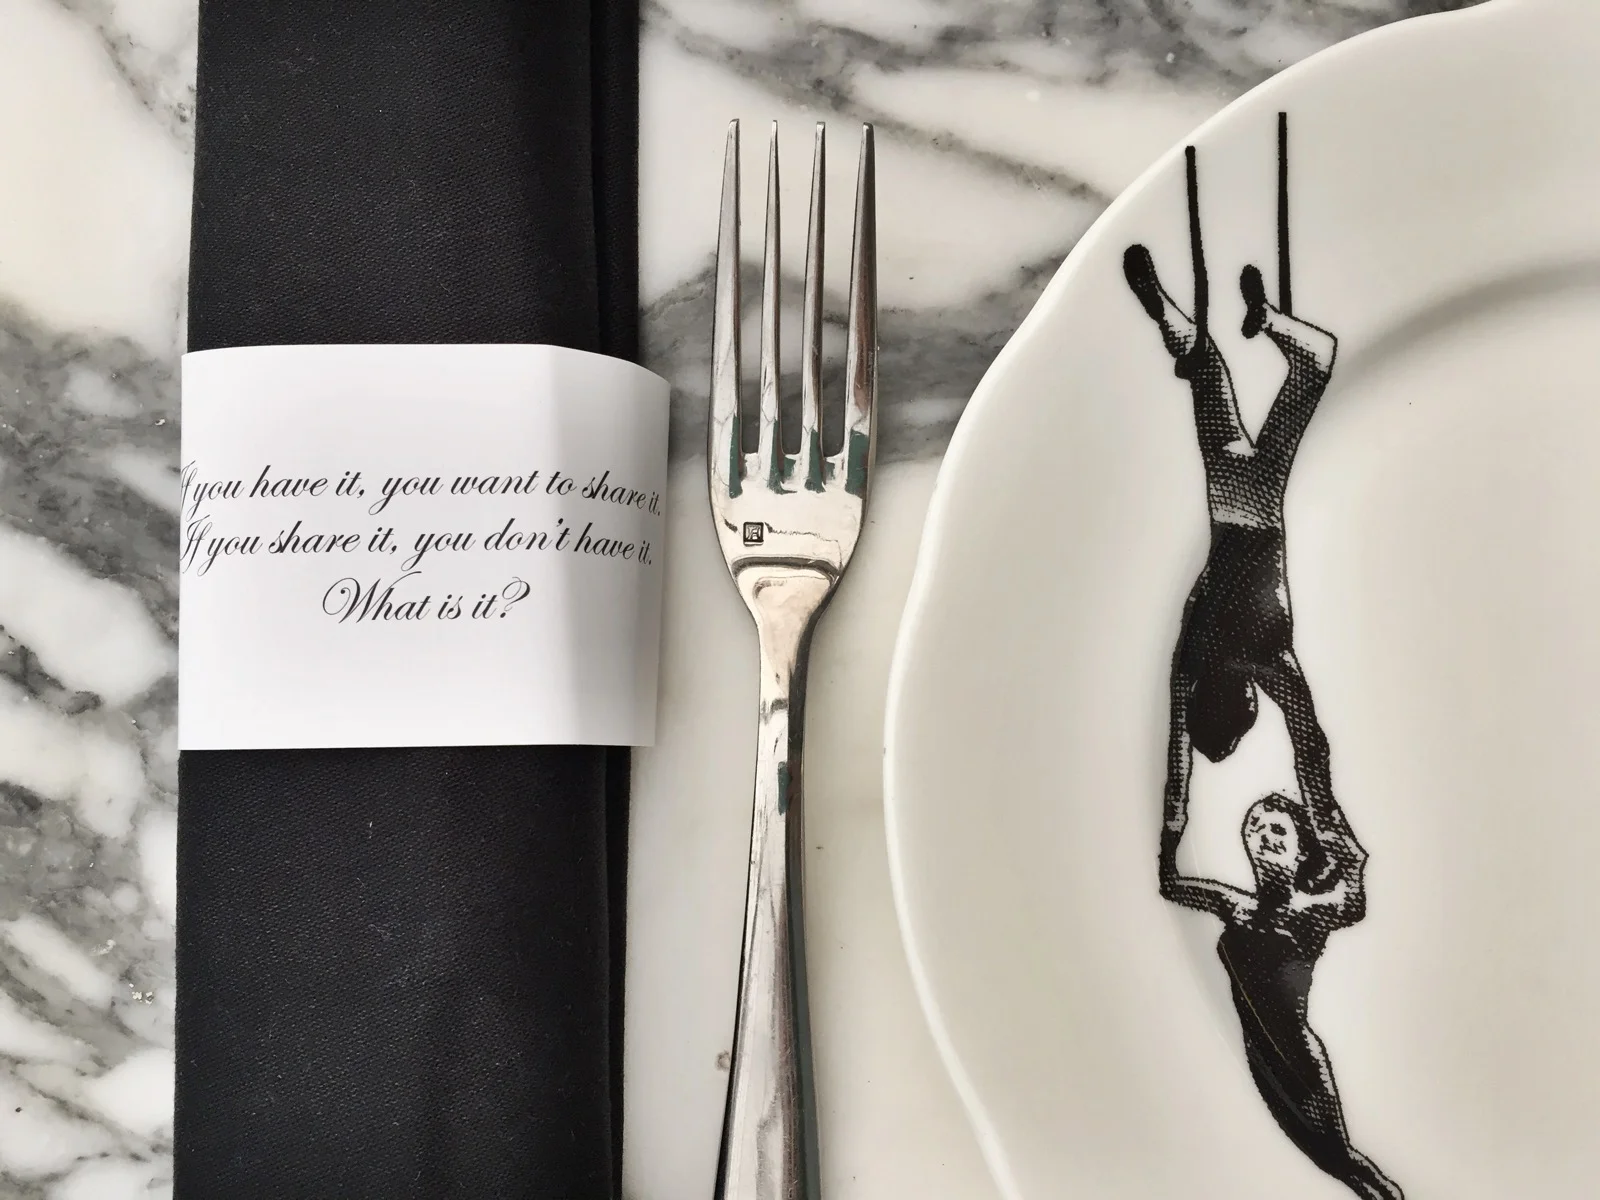 If you have it, you want to share it.
If you share it, you don't have it.
What is it?